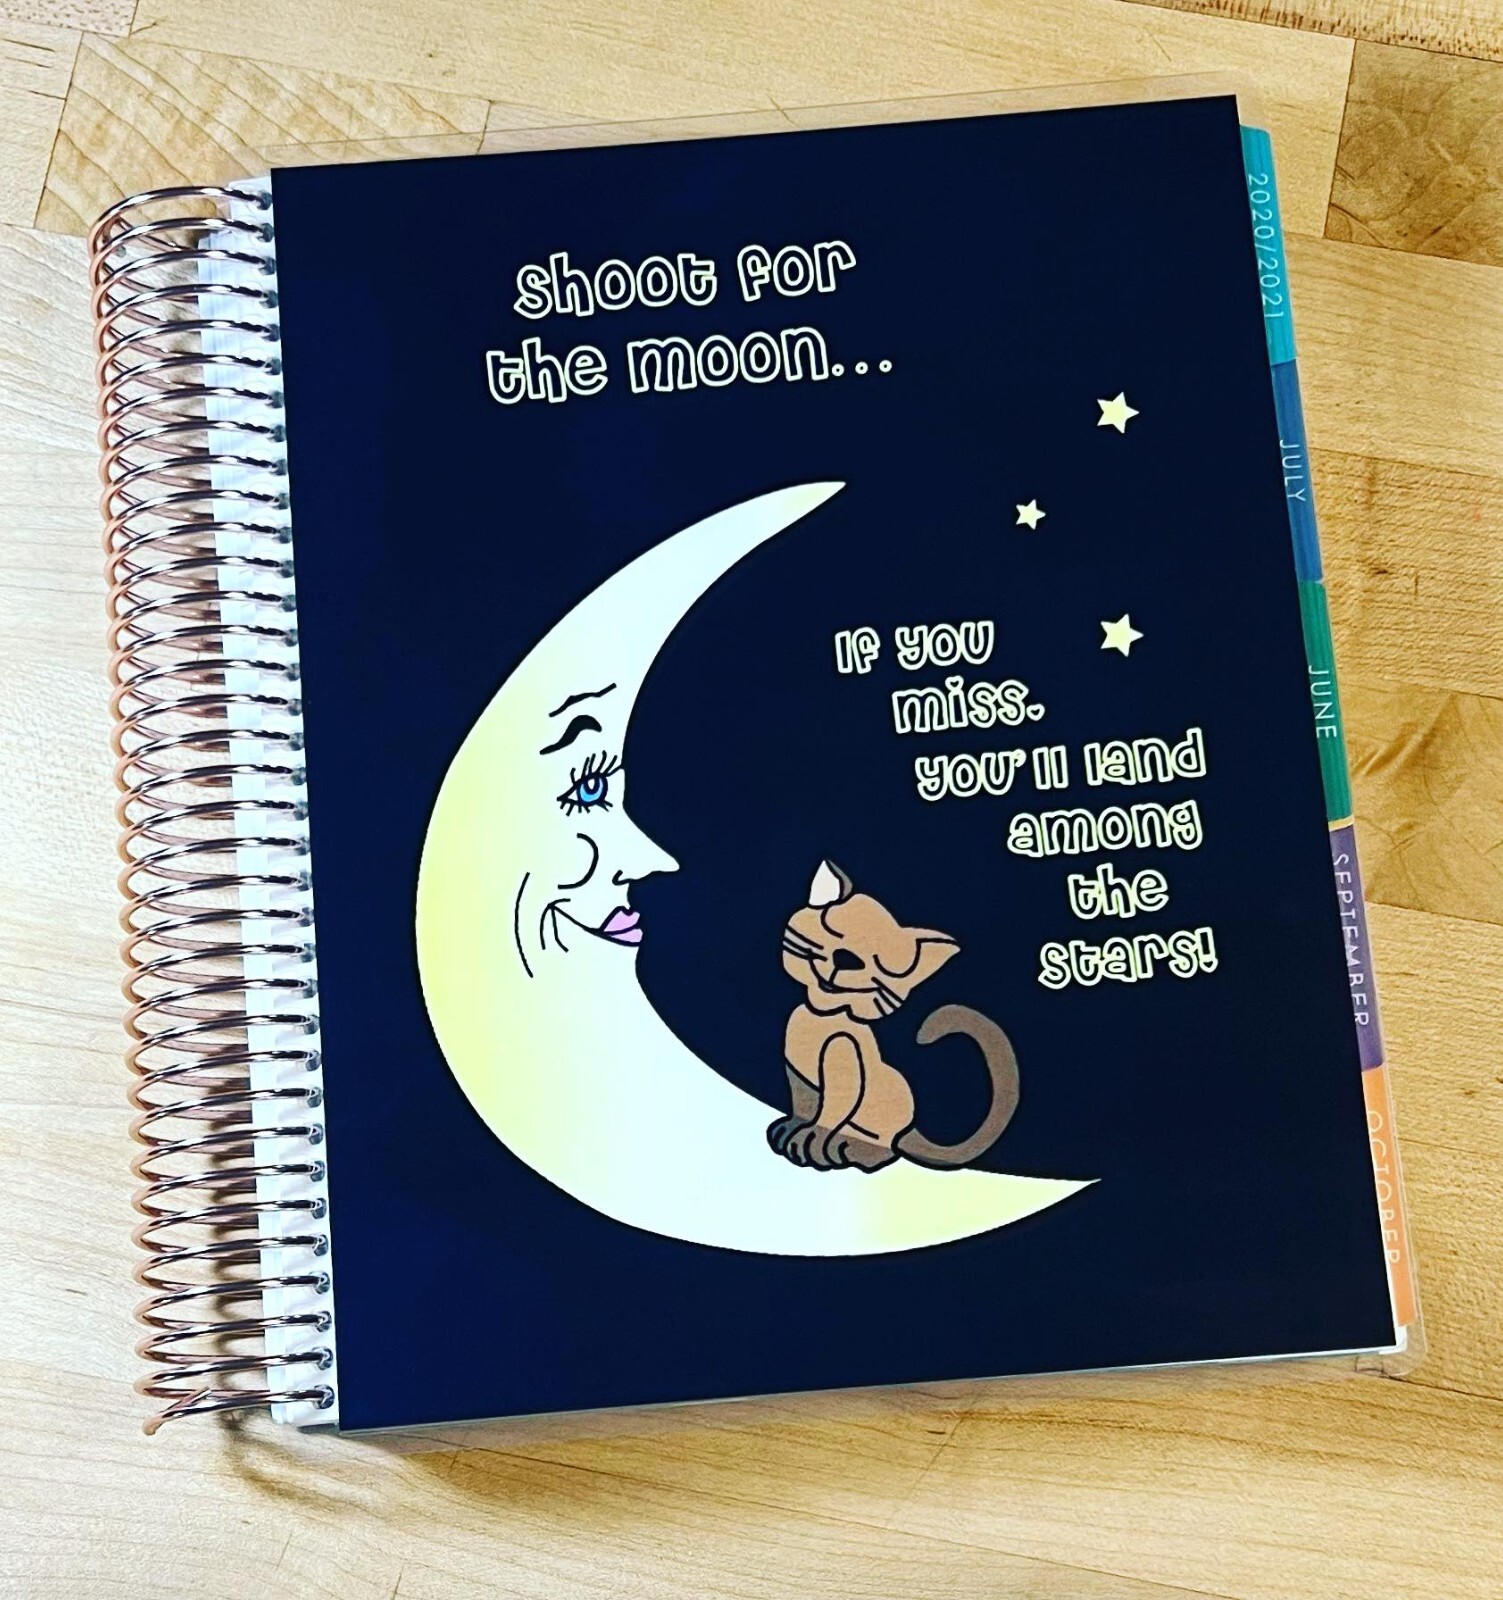 shoot for
the moon...
If you
miss.
you'll land
among
the
stars!
2020/2021
JULY
JUNE
SEPTEMBER
OCTOBER